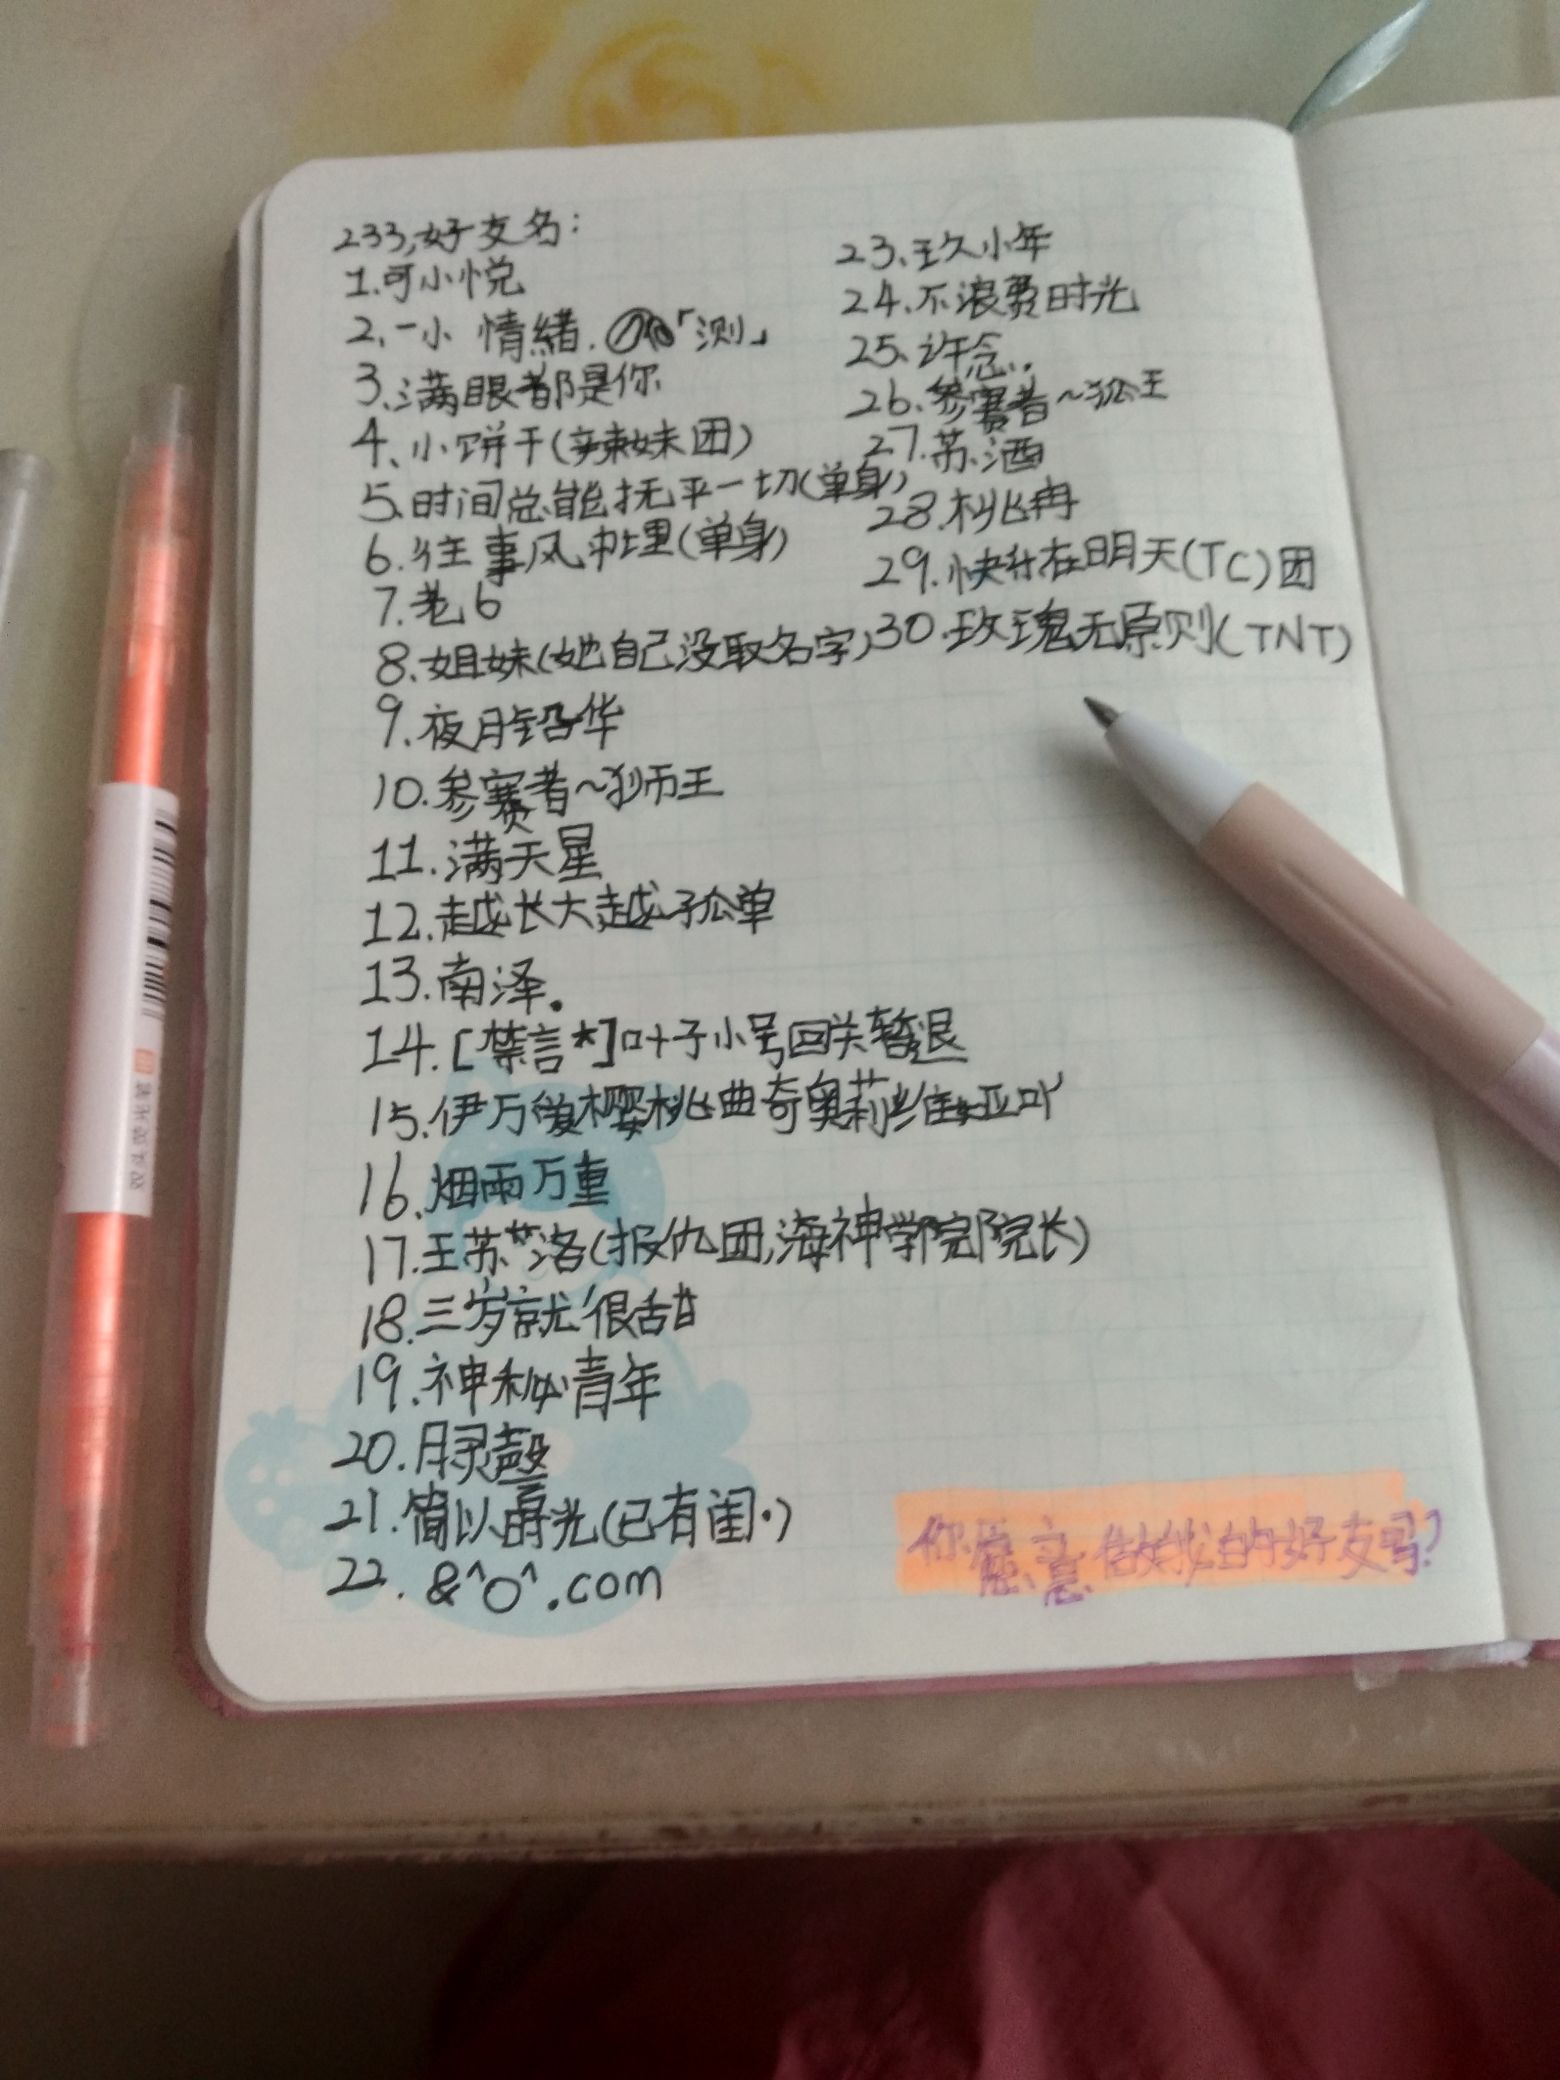 233,好友名:
1.可小悦
2.一小 情緒.「测」
3.满眼都是你
4.小饼干(辣妹团)
5.时间总能抚平一切(单身)
6.往事风中埋(单身)
7.老6
8.姐妹(她自己没取名字)
9.夜月铅华
10.参赛者~狮王
11.满天星
12.越长大越孤单
13.南泽。
14.[禁言*]叶子小号回关暂退
15.伊万爱樱桃曲奇奥莉维娅吖
16.烟雨万重
17.王苏洛(报仇团,海神学院院长)
18.三岁就很甜
19.神秘青年
20.月灵
21.简以光(已有闺·)
22.&^O^.com
23.玖小年
24.不浪费时光
25.许念..
26.参赛者~狐王
27.苏酒
28.桃冉
29.快升在明天(TC)团
30.玫瑰无原则(TNT)
你愿意做我的好友吗?
双头荧光笔